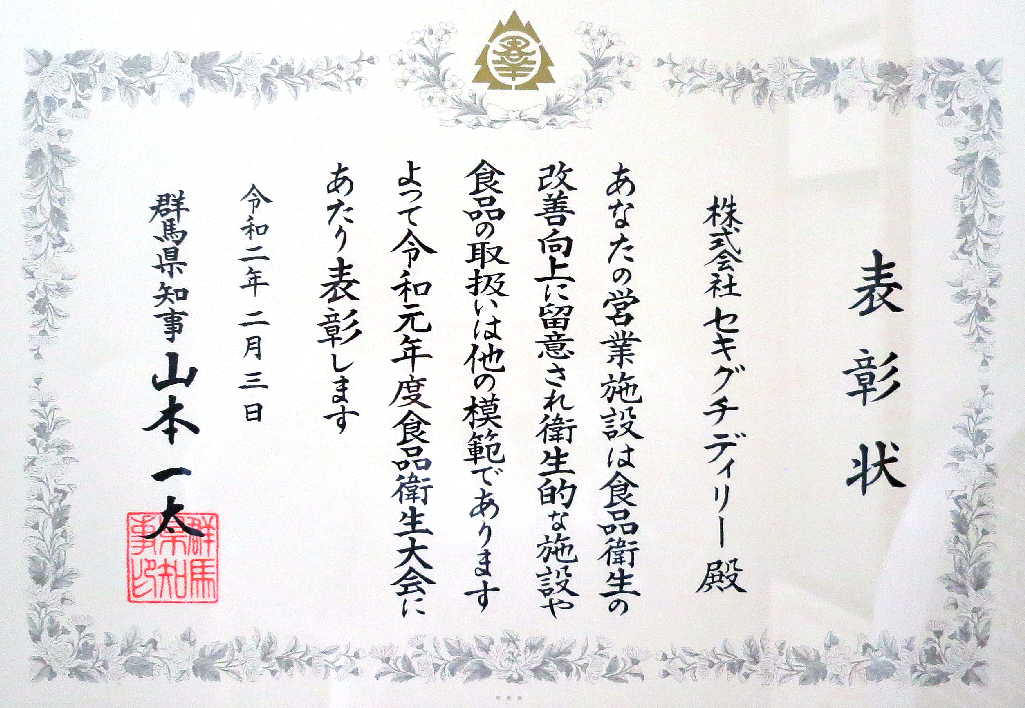 表彰状
株式会社セキグチディリー殿
あなたの営業施設は食品衛生の
改善向上に留意され衛生的な施設や
食品の取扱いは他の模範であります
よって令和元年度食品衛生大会に
あたり表彰します
令和二年二月三日
群馬県知事 山本一太
群馬県知事印